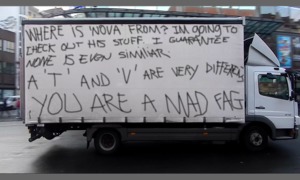 WHERE IS 'NOVA' FROM? IM GOING TO
CHECK OUT HIS STUFF. I GUARANTEE
NONE IS EVEN SIMMILAR.
A 'T' AND 'V' ARE VERY DIFFERENT
YOU ARE A MAD FAG